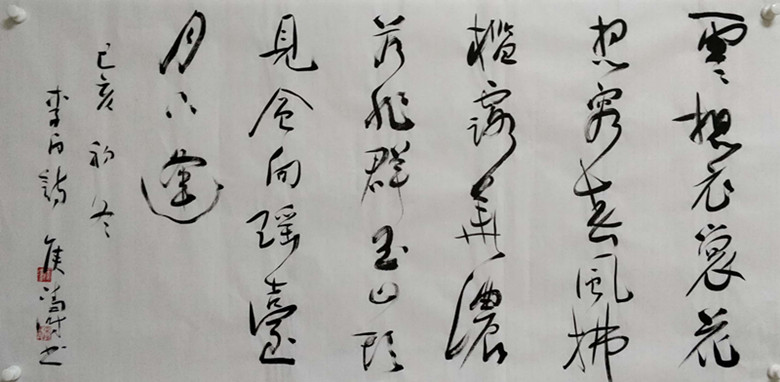 雲想衣裳花
想容春風拂
檻露華濃
若非群玉山頭
見会向瑤臺
月下逢
己亥初冬
李白詩 侯 书